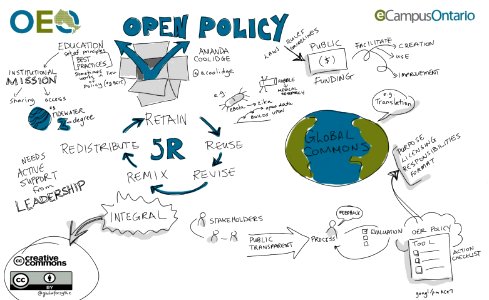 OEO
OPEN POLICY
eCampusOntario
EDUCATION
set of principles
BEST
PRACTICES
sometimes
Policy
INSTITUTIONAL
MISSION
sharing
access
e.g.
TIDEWATER
Z-degree
AMANDA
COOLIDGE
@acoolidge
LAWS
RULES
PUBLIC
($)
FUNDING
FACILITATE
CREATION
USE
IMPROVEMENT
e.g.
ZIKA
open data
BUILDS UPON
MEDICAL
RESEARCH
e.g.
Translation
RETAIN
REDISTRIBUTE
5R
REUSE
REMIX
REVISE
GLOBAL
COMMONS
PURPOSE
LICENSING
RESPONSIBILITIES
FORMAT
NEEDS
ACTIVE
SUPPORT
from
LEADERSHIP
INTEGRAL
STAKEHOLDERS
PUBLIC
TRANSPARENT
PROCESS
FEEDBACK
EVALUATION
OER POLICY
TOOL
ACTION
CHECKLIST
cc creative
commons
cc
BY
@giuliaforsythe